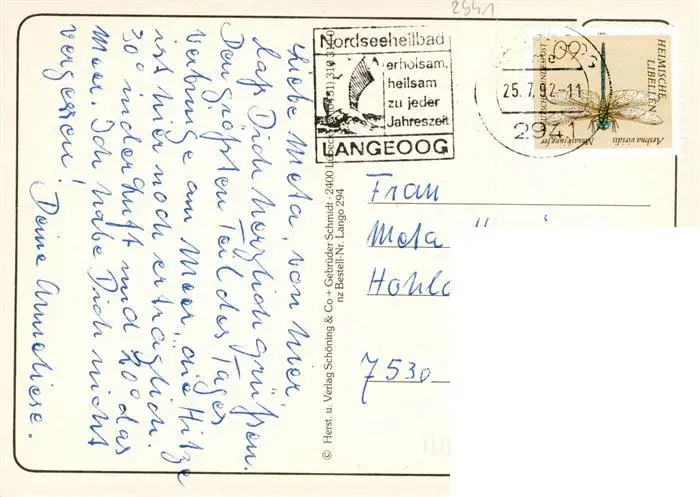 2941
Nordseeheilbad
erholsam,
heilsam
zu jeder
Jahreszeit
LANGEOOG
25.7.92-11
2941
HEIMISCHE
LIBELLEN
Aeshna viridis
DEUTSCHE BUNDESPOST
Liebe Meta, von hier
laß Dich herzlich grüßen.
Den größten Teil des Tages
verbringe am Meer, die Hitze
ist hier noch erträglich.
30° in der Luft und 20° das
Meer. Ich habe Dich nicht
vergessen!
Deine Anneliese.
© Herst. u. Verlag Schöning & Co + Gebrüder Schmidt · 2400 Lübeck
nz Bestell-Nr. Lango 294
Frau
Meta
7530